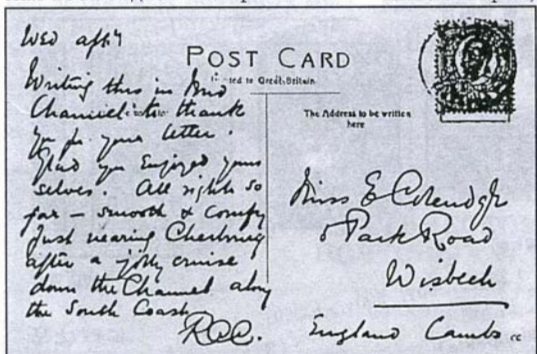 Wed aft
POST CARD
Printed to Great Britain
Writing this in Mid
Channel to thank
you for your letter.
Glad you enjoyed your
selves. All right so
far – smooth & comfy
Just nearing Cherbourg
after a jolly cruise
down the Channel along
the South Coast
R.C.C.
The Address to be written
here
Miss E
Park Road
Wisbech
England Cambs